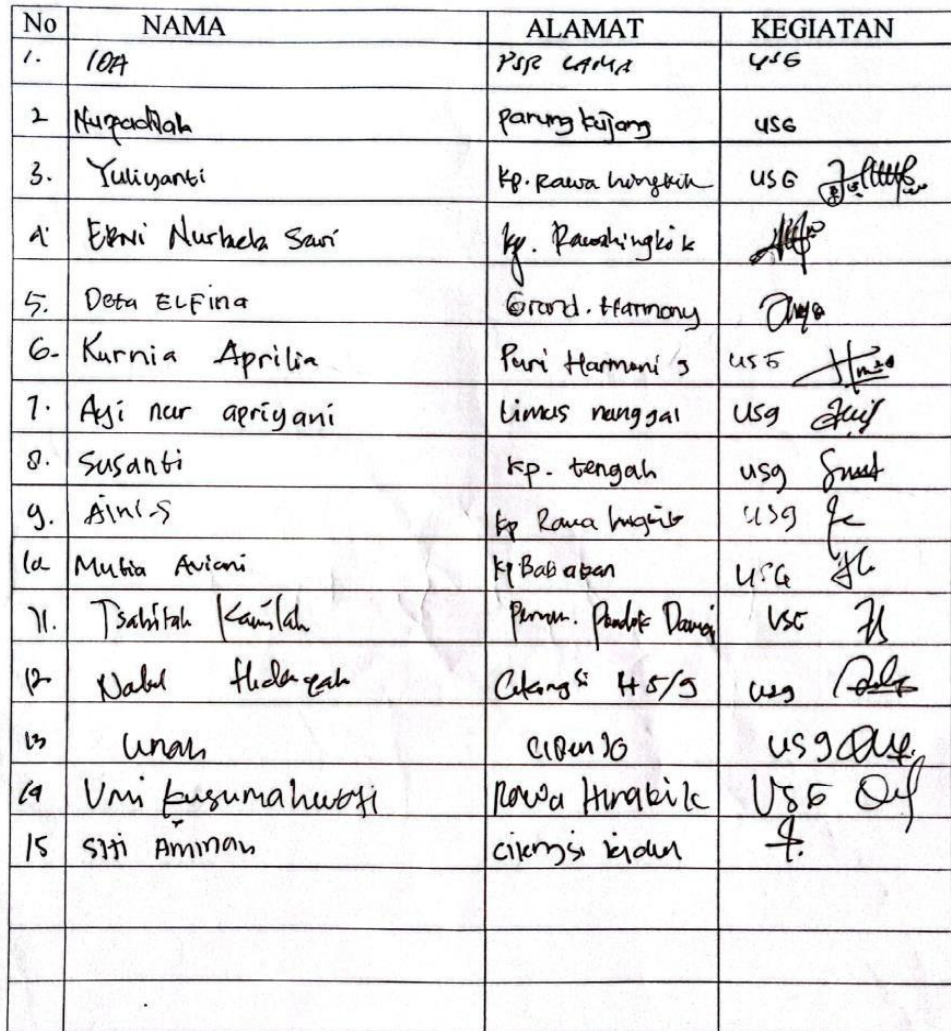 No NAMA ALAMAT KEGIATAN
1. IDA PSR LAMA USG
2 Nurpadilah parung kujang USG
3. Yuliyanti Kp. Rawa hingkik USG
4 Erni Nurlaela Sari kp. Rawahingkik
5. Deta ELFina Grand. Harmony
6. Kurnia Aprilia Puri Harmoni 9 USG
7. Ayi nur apriyani Limus nunggal Usg
8. Susanti Kp. tengah usg
9. Aini.S Kp Rawa hingkik usg
10 Mutia Aviani Kp Babakan USG
11. Tsabitah Kamilah Perum. Pondok USG
12 Hidayah H5/9 usg
13 Unah usg
14 Umi kusumahwati Rawa Hingkik USG
15 Siti Aminah cileungsi kidul